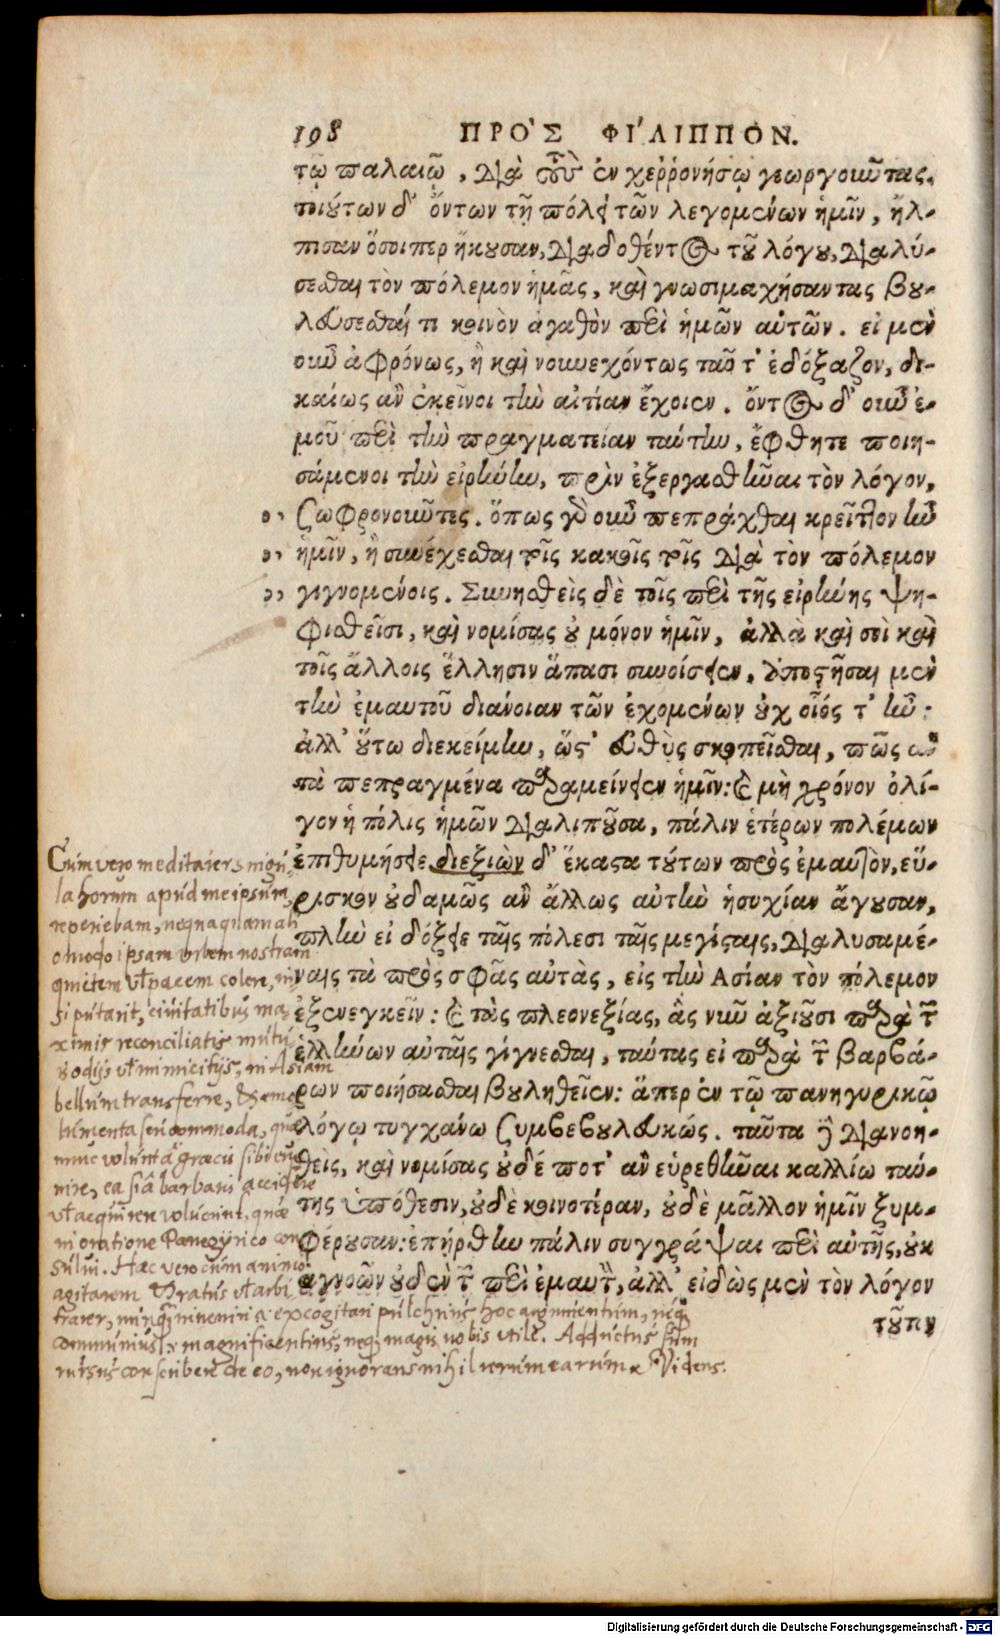 198 ΠΡΟ'Σ ΦΙ'ΛΙΠΠΟΝ.
τῷ παλαιῷ, διὰ τοὺς ἐν χεῤῥονήσῳ γεωργοιῶτας.
τοιούτων δ' ὄντων τῇ πόλει τῶν λεγομένων ἡμῖν, ἤλ-
πισαν ὅσοιπερ ἤκουσαν, διαδοθέντος τοῦ λόγου, διαλύ-
σεσθαι τὸν πόλεμον ἡμᾶς, καὶ γνωσιμαχήσαντας βου-
λεύσεσθαί τι κοινὸν ἀγαθὸν περὶ ἡμῶν αὐτῶν. εἰ μὲν
οὖν ἀφρόνως, ἢ καὶ νουνεχόντως ταῦτ' ἐδόξαζον, δι-
καίως ἂν ἐκεῖνοι τὴν αἰτίαν ἔχοιεν. ὄντος δ' οὖν ἐ-
μοῦ περὶ τὴν πραγματείαν ταύτην, ἔφθητε ποιη-
σάμενοι τὴν εἰρήνην, πρὶν ἐξεργασθῆναι τὸν λόγον,
σωφρονοῦντες. ὅπως γὰρ οὖν πεπρᾶχθαι κρεῖττον ἦν
ἡμῖν, ἢ συνέχεσθαι τοῖς κακοῖς τοῖς διὰ τὸν πόλεμον
γιγνομένοις. Συνησθεὶς δὲ τοῖς περὶ τῆς εἰρήνης ψη-
φισθεῖσι, καὶ νομίσας οὐ μόνον ἡμῖν, ἀλλὰ καὶ σοὶ καὶ
τοῖς ἄλλοις ἕλλησιν ἅπασι συνοίσειν, ἀποστῆσαι μὲν
τὴν ἐμαυτοῦ διάνοιαν τῶν ἐχομένων οὐχ οἷός τ' ἦν:
ἀλλ' οὕτω διεκείμην, ὥστ' εὐθὺς σκοπεῖσθαι, πῶς
τὰ πεπραγμένα παραμείνειεν ἡμῖν: καὶ μὴ χρόνον ὀλί-
γον ἡ πόλις ἡμῶν διαλιποῦσα, πάλιν ἑτέρων πολέμων
ἐπιθυμήσειε. διεξιὼν δ' ἕκαστα τούτων πρὸς ἐμαυτὸν, εὕ-
ρισκον οὐδαμῶς ἂν ἄλλως αὐτὴν ἡσυχίαν ἄγουσαν,
πλὴν εἰ δόξειε ταῖς πόλεσι ταῖς μεγίσταις, διαλυσαμέ-
ναις τὰ πρὸς σφᾶς αὐτὰς, εἰς τὴν Ασίαν τὸν πόλεμον
ἐξενεγκεῖν: καὶ τὰς πλεονεξίας, ἃς νῦν ἀξιοῦσι παρὰ τῶν
ἑλλήνων αὐταῖς γίγνεσθαι, ταύτας εἰ παρὰ τῶν βαρβά-
ρων ποιήσασθαι βουληθεῖεν: ἅπερ ἐν τῷ πανηγυρικῷ
λόγῳ τυγχάνω συμβεβουλευκώς. ταῦτα δὲ διανοη-
θεὶς, καὶ νομίσας οὐδέ ποτ' ἂν εὑρεθῆναι καλλίω ταύ-
της ὑπόθεσιν, οὐδὲ κοινοτέραν, οὐδὲ μᾶλλον ἡμῖν ξυμ-
φέρουσαν: ἐπήρθην πάλιν συγγράψαι περὶ αὐτῆς, οὐκ
ἀγνοῶν οὐδὲν τῶν περὶ ἐμαυτοῦ, ἀλλ' εἰδὼς μὲν τὸν λόγον
τοῦτον
Cum vero meditarer singu-
la horum apud me ipsum,
reperiebam, nequaquam ali
o modo ipsam urbem nostram
quietem vel pacem colere, ni-
si putarit, civitatibus ma-
ximis reconciliatis mutu
is odijs vel inimicitijs, in Asiam
bellum transferre, & emo-
lumenta seu commoda, quæ
nunc voluntâ græcis sibi eve
nire, ea si â barbaris accidere
vel acquirere voluerint, quæ
in oratione Panegyrico con
sului. Hæc vero cum animo
agitarem & ratus vel arbi
trarer, nunquam inveniri & excogitari pulchrius hoc argumentum, neque
communius & magnificentius, neque magis nobis utile. Adductus sum
rursus conscribere de eo, non ignorans nihil rerum earum & Videns.
Digitalisierung gefördert durch die Deutsche Forschungsgemeinschaft - DFG